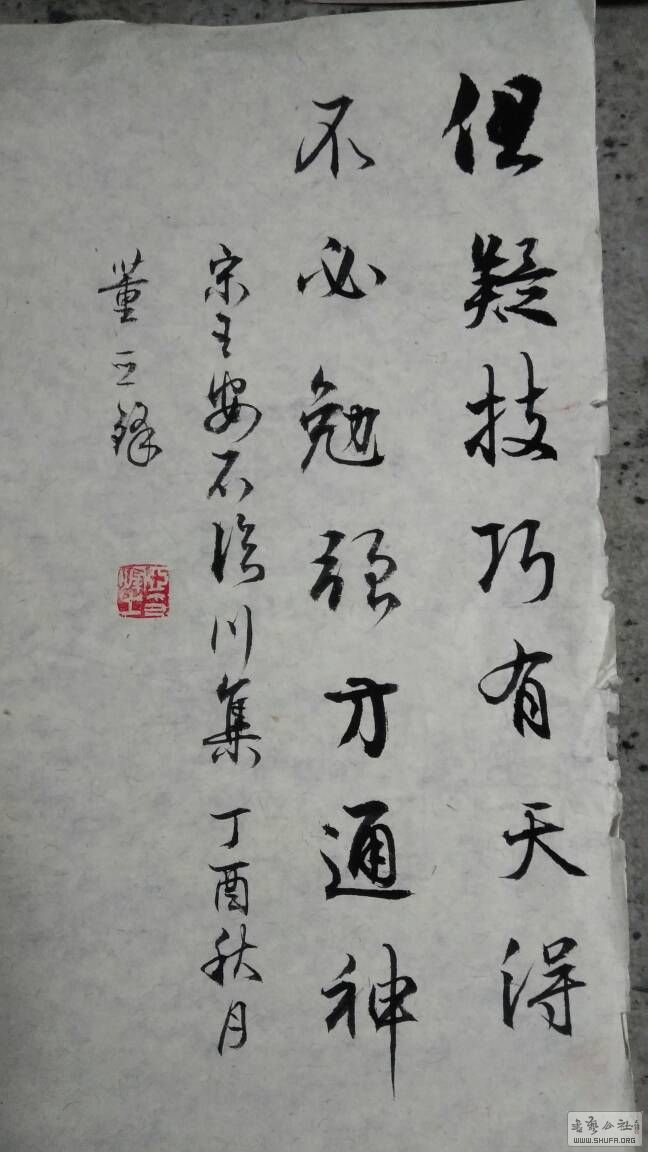 但疑技巧有天得
不必勉强方通神
宋王安石临川集 丁酉秋月
董正锋
书艺公社
WWW.SHUFA.ORG